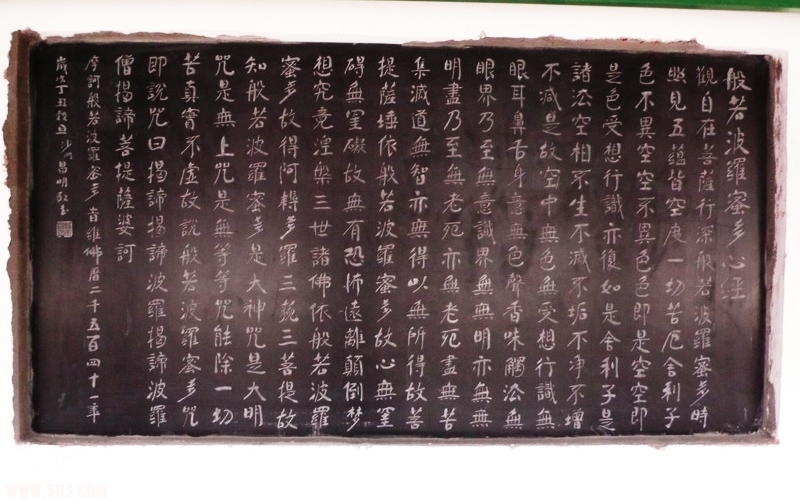 般若波羅蜜多心經
觀自在菩薩行深般若波羅蜜多時
照見五蘊皆空度一切苦厄舍利子
色不異空空不異色色即是空空即
是色受想行識亦復如是舍利子是
諸法空相不生不滅不垢不淨不增
不減是故空中無色無受想行識無
眼耳鼻舌身意無色聲香味觸法無
眼界乃至無意識界無無明亦無無
明盡乃至無老死亦無老死盡無苦
集滅道無智亦無得以無所得故菩
提薩埵依般若波羅蜜多故心無罣
礙無罣礙故無有恐怖遠離顛倒夢
想究竟涅槃三世諸佛依般若波羅
蜜多故得阿耨多羅三藐三菩提故
知般若波羅蜜多是大神咒是大明
咒是無上咒是無等等咒能除一切
苦真實不虛故說般若波羅蜜多咒
即說咒曰揭諦揭諦波羅揭諦波羅
僧揭諦菩提薩婆訶
摩訶般若波羅蜜多 時維佛曆二千五百四十一年
歲次丁丑 昌明
www.SHS.COM